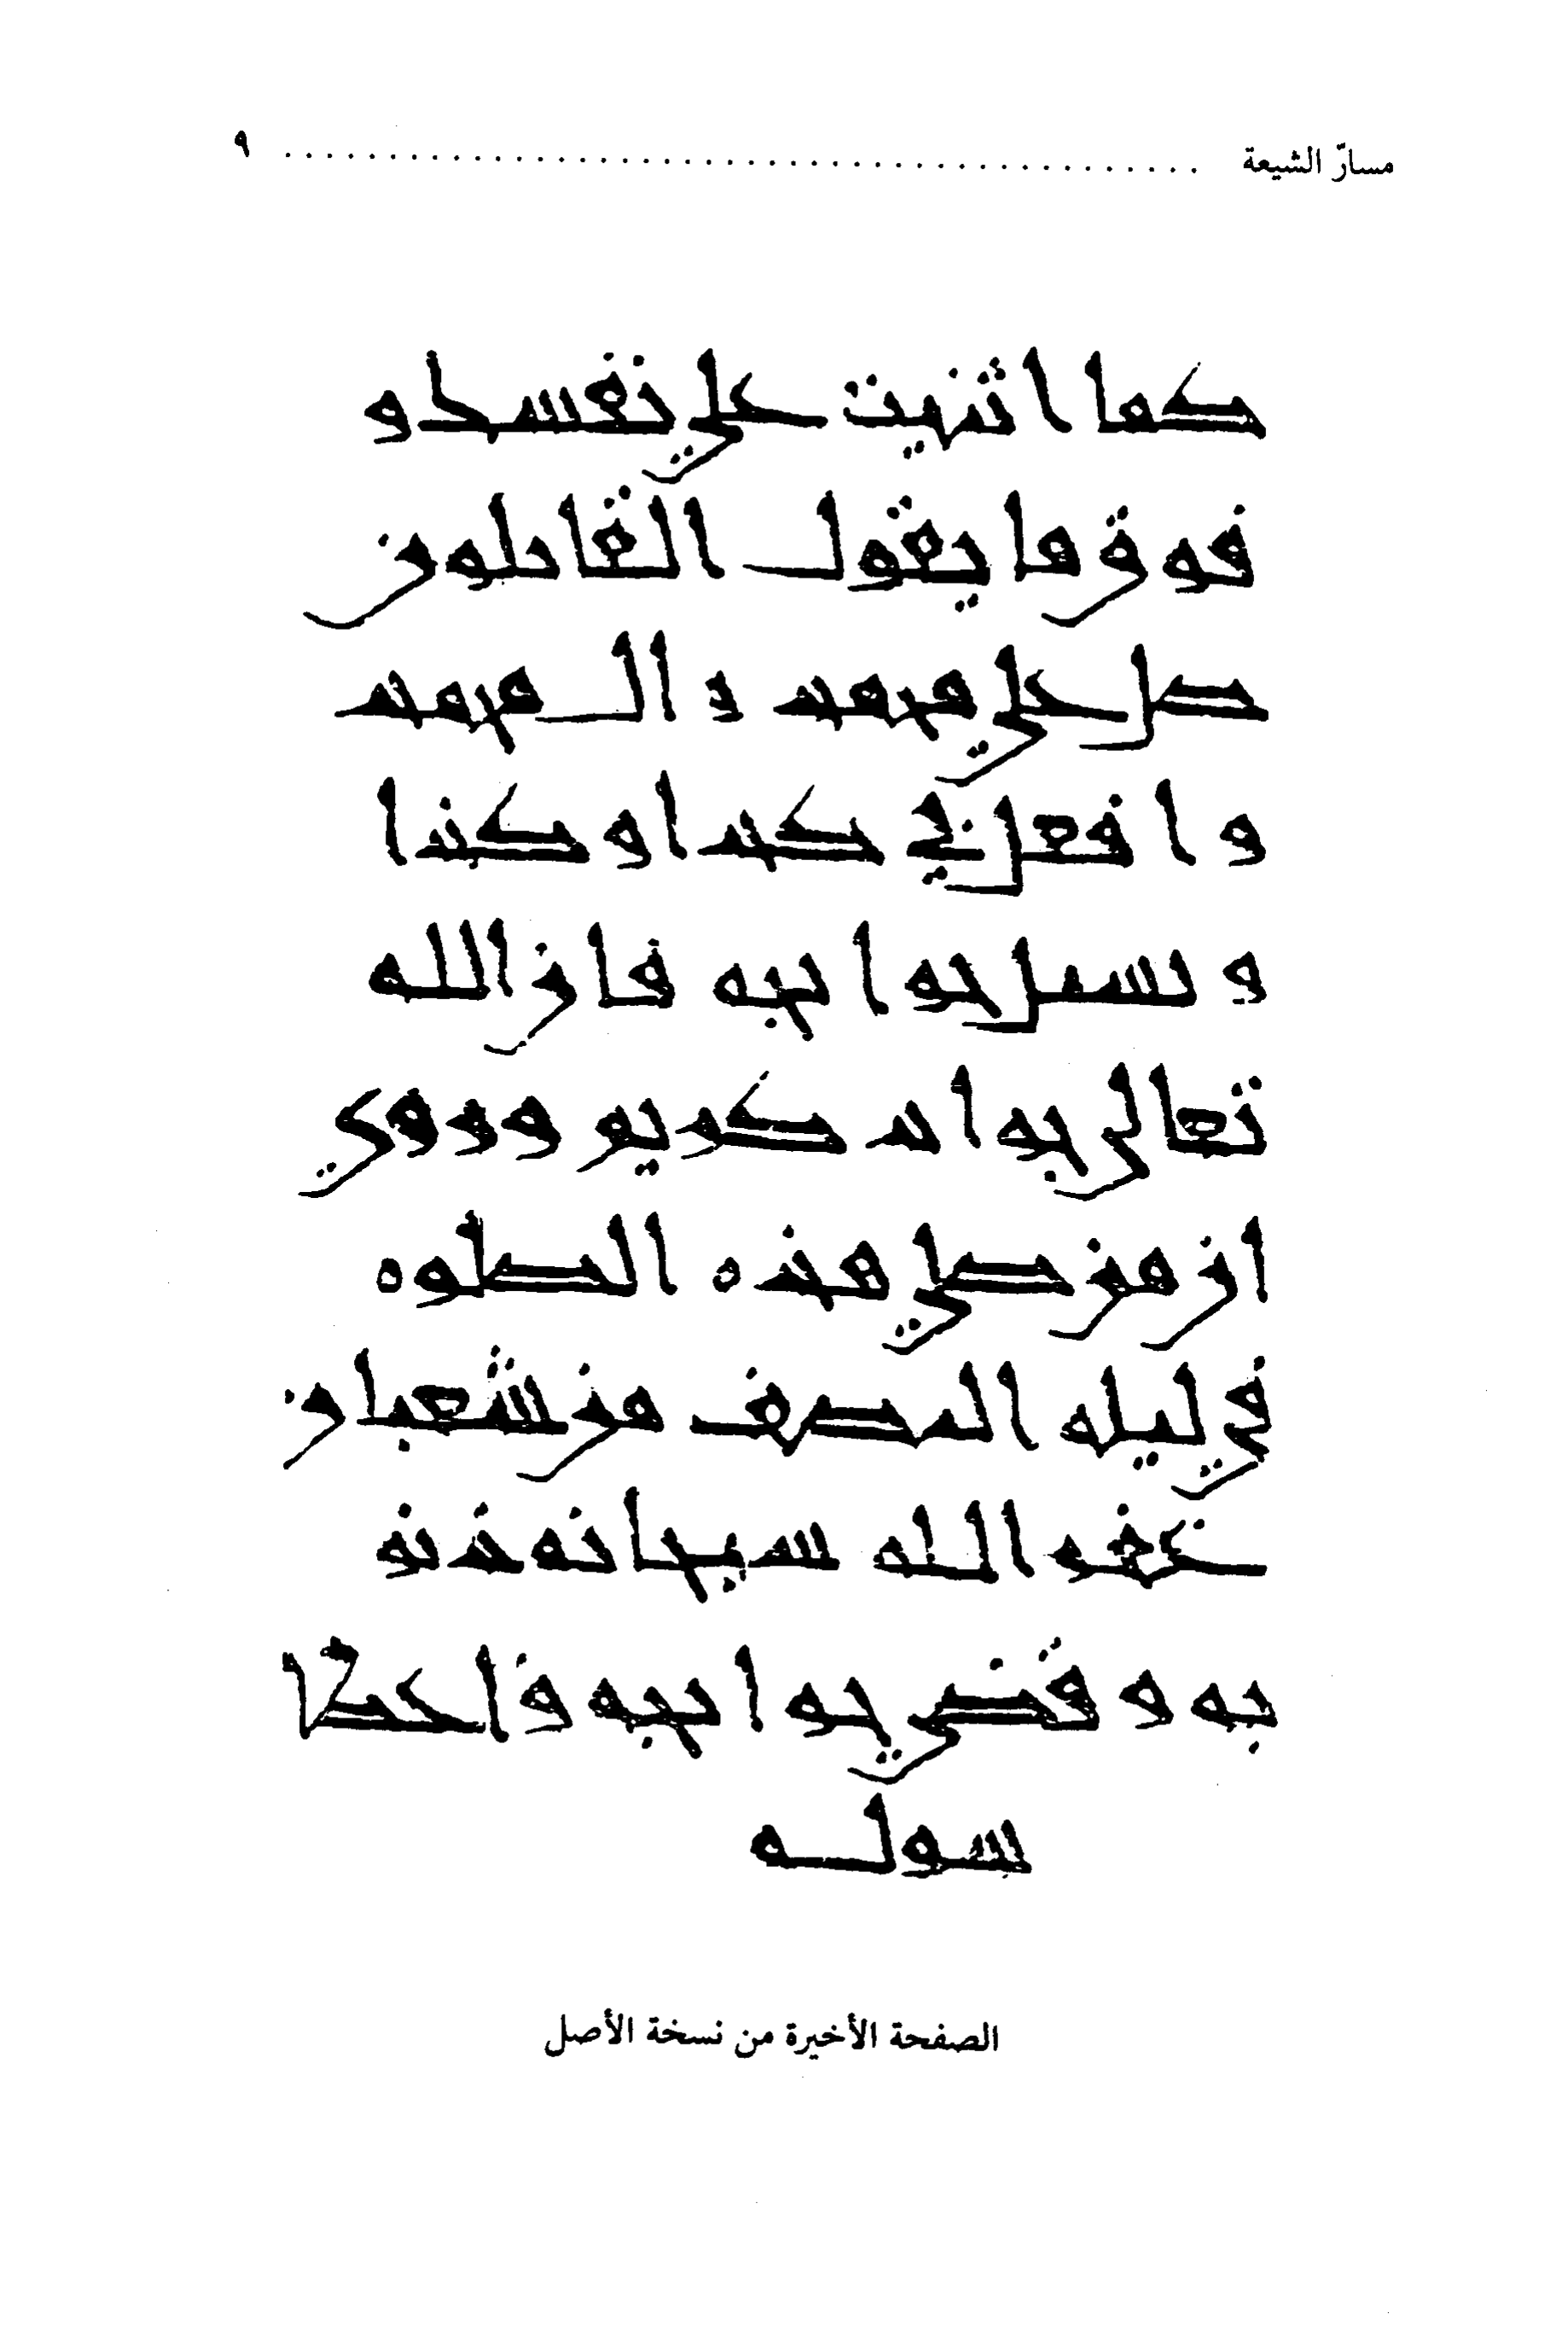 مسارّ الشيعة ........................................ ٩
كما اثنيت علي نفسك و
فوق ما يقول القائلون
صل علي محمد و ال محمد
و افعل بي كذا و كذا
و يسل حوائجه فان الله
تعالي جواد كريم و روي
ان من صلي هذه الصلوه
في ليله النصف من شعبان
غفر الله سبحانه ذنو
به و قضي حوائجه و اعطا
سوله
الصفحة الأخيرة من نسخة الأصل